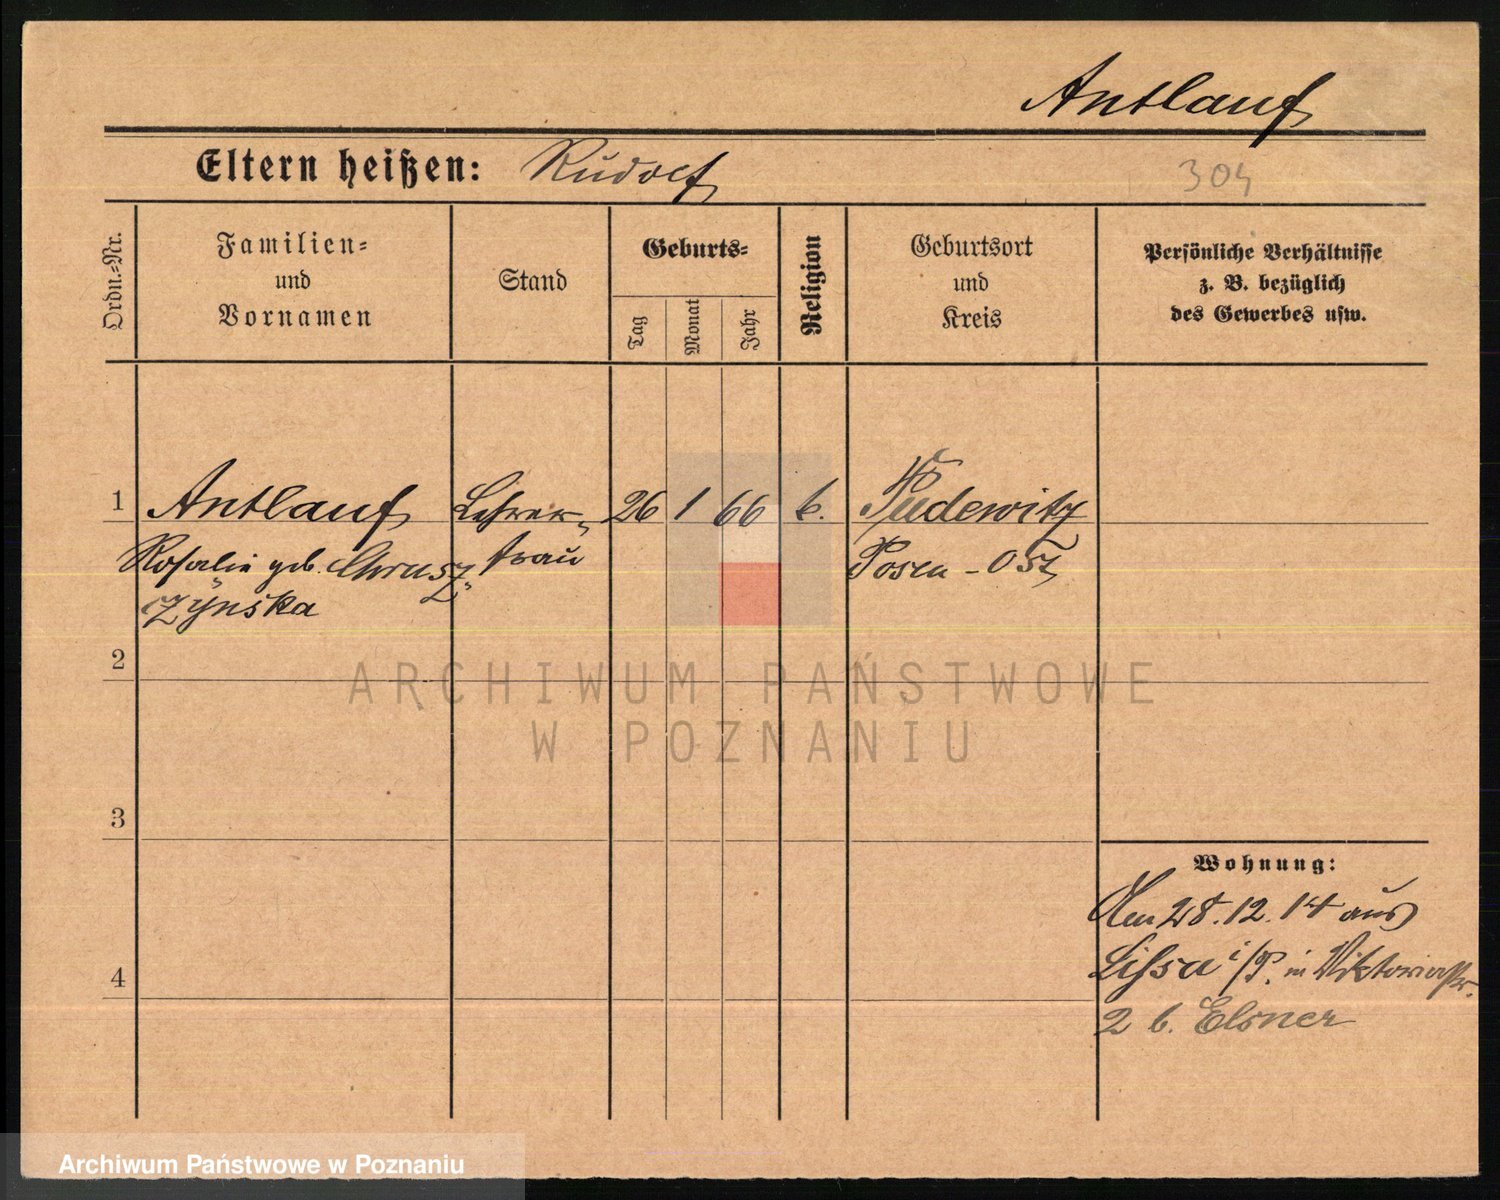 Antlauf
Eltern heißen: Rudolf
304
Ordn.-Nr.
Familien-
und
Vornamen
Stand
Geburts-
Tag
Monat
Jahr
Religion
Geburtsort
und
Kreis
Persönliche Verhältnisse
z. B. bezüglich
des Gewerbes usw.
1 Antlauf Lehrer- 26 1 66 k. Pudewitz
Rosalie geb. Chrusz- frau Posen-Ost
czynska
2
3
4
Wohnung:
Am 28.12.14 aus
Lissa i/P. in Viktoriastr.
2 b. Elsner
ARCHIWUM PAŃSTWOWE
W POZNANIU
Archiwum Państwowe w Poznaniu